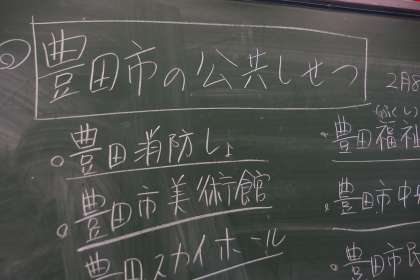 豊田市の公共しせつ
豊田消防しょ
豊田市美術館
豊田スカイホール
2月8
ふくし
豊田福祉
豊田市中
豊田市